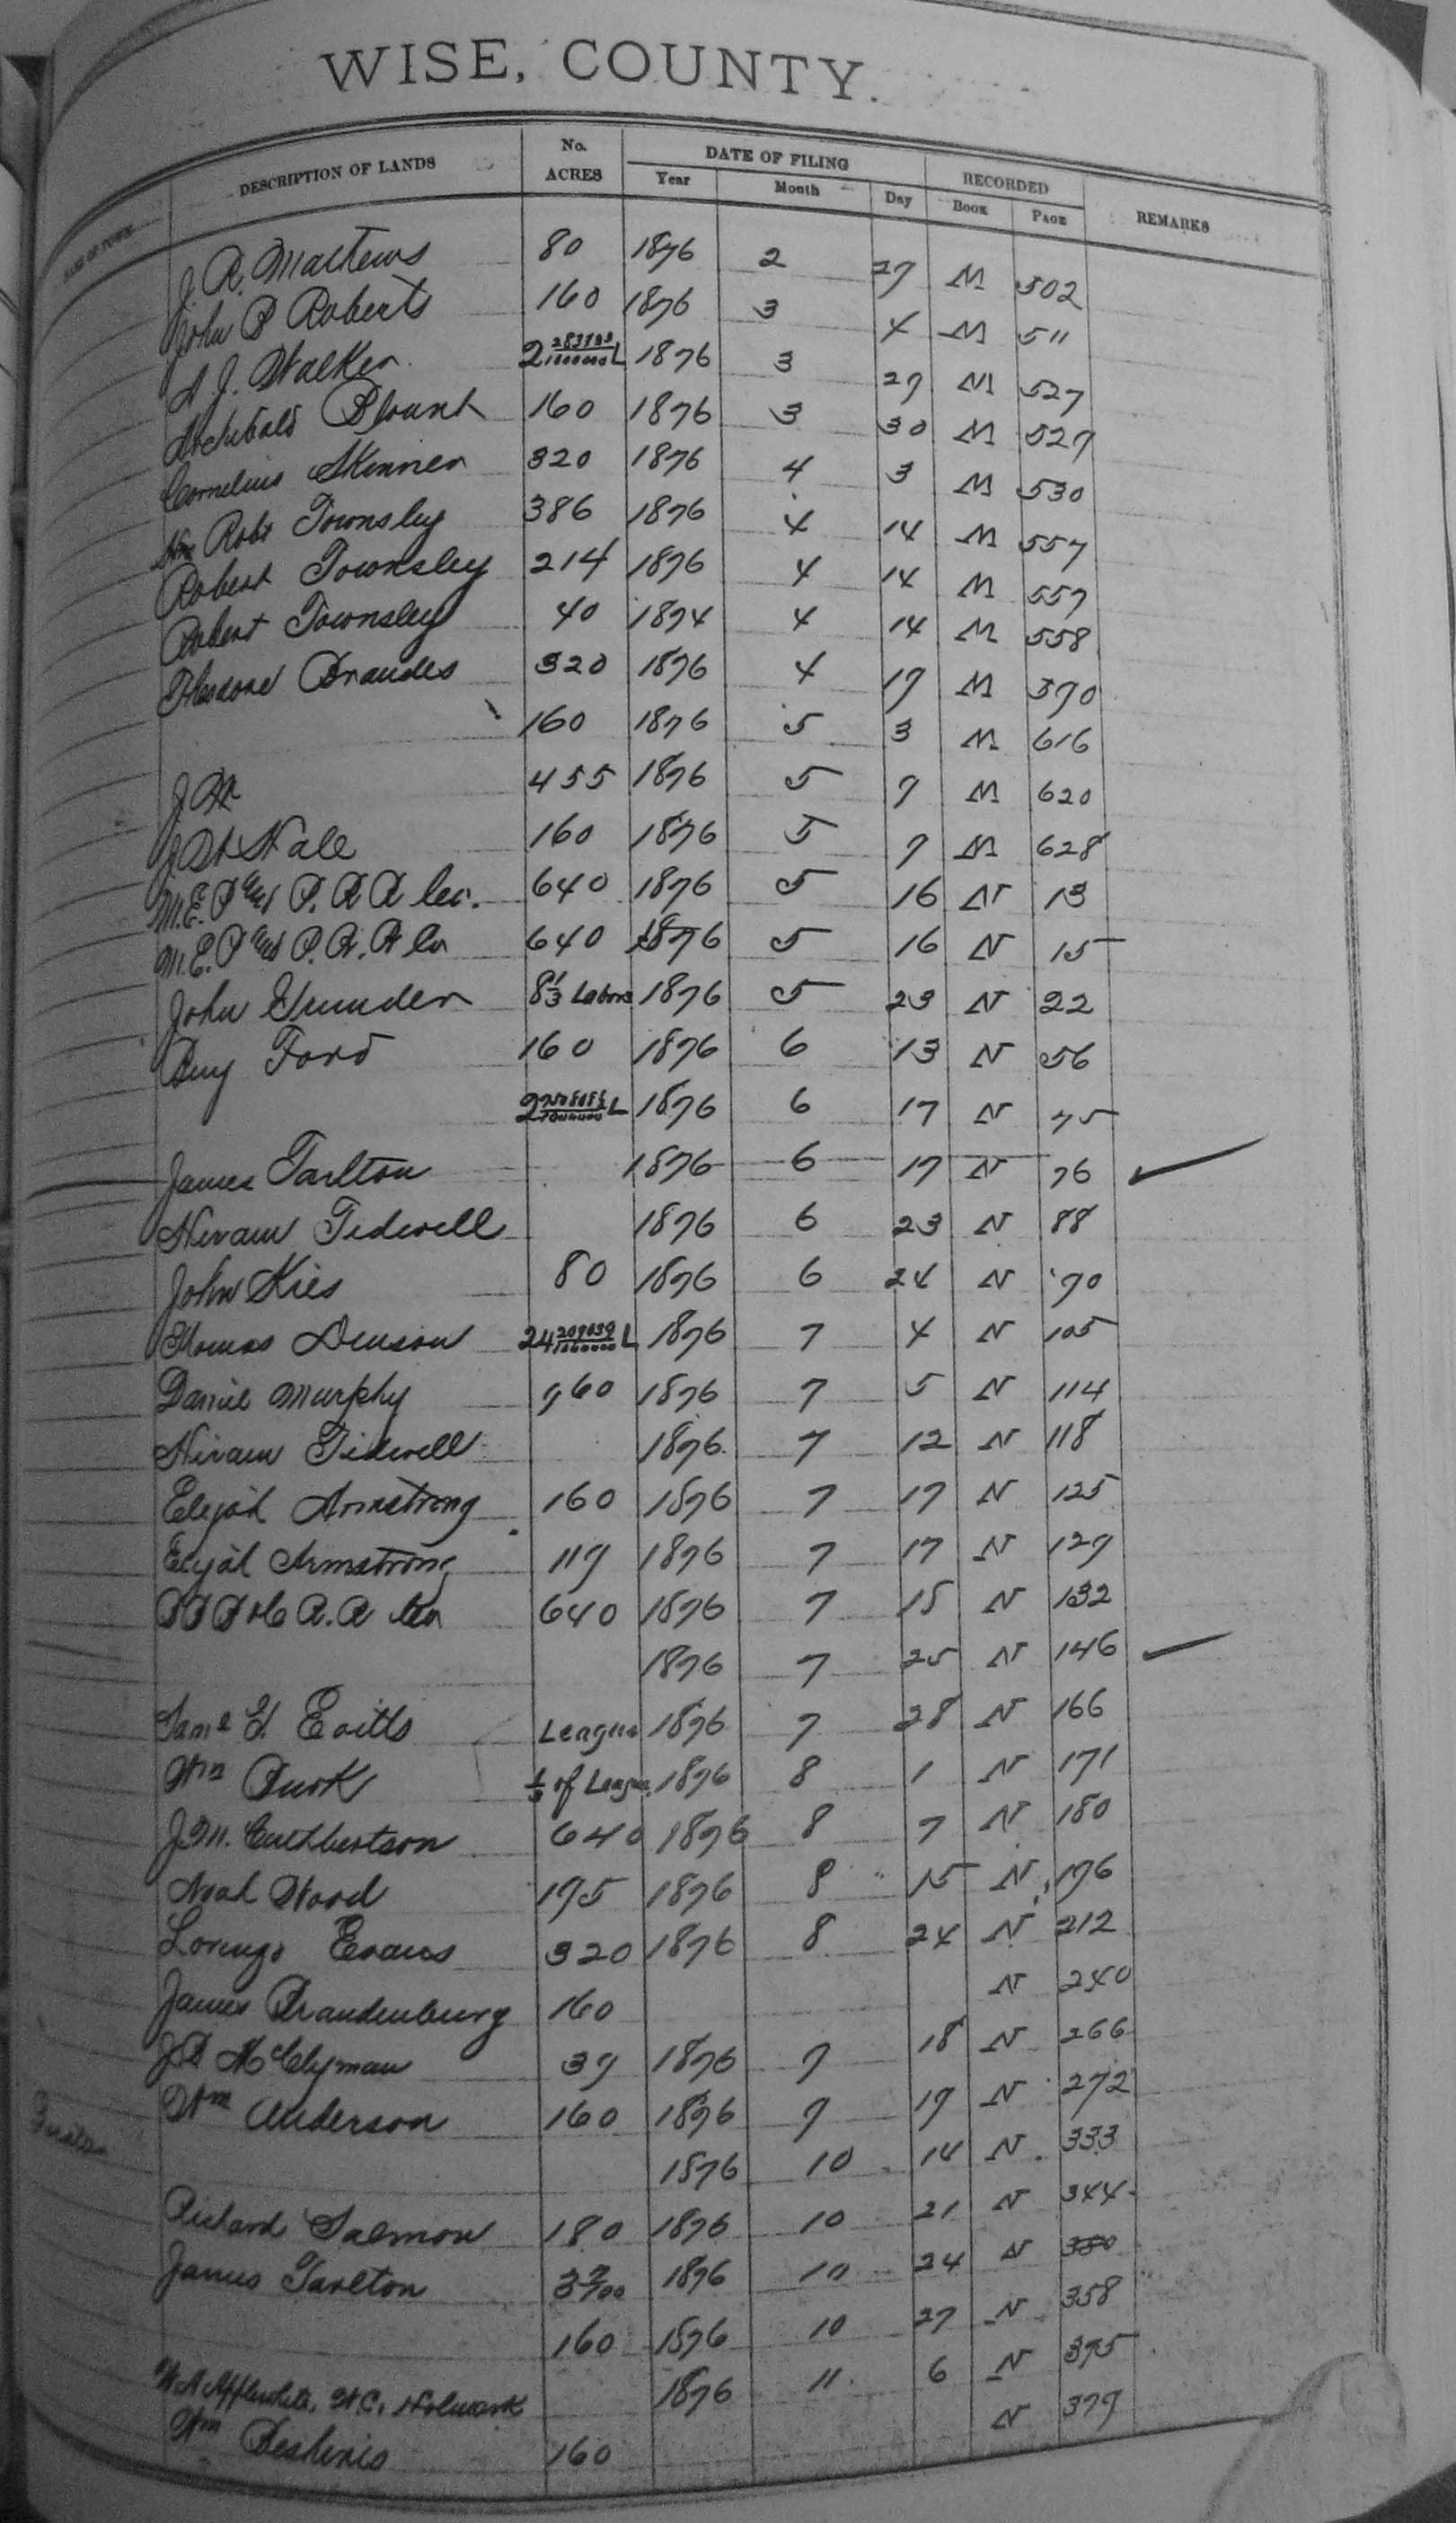 WISE, COUNTY.
NAME OF TOWN DESCRIPTION OF LANDS No. ACRES DATE OF FILING RECORDED REMARKS
Year Month Day Book Page
J. R. Mathews 80 1876 2 29 M 502
John P Roberts 160 1876 3 4 M 511
A J. Walker 2 L 1876 3 29 M 527
Archibald Blount 160 1876 3 30 M 529
Cornelius Skinner 320 1876 4 3 M 530
Robt Townsley 386 1876 4 14 M 557
Robert Townsley 214 1876 4 14 M 557
Robert Townsley 40 1874 4 14 M 558
Theodore Brandes 320 1876 4 19 M 390
160 1876 5 3 M 616
J M 455 1876 5 9 M 620
J Hale 160 1876 5 9 M 628
M.E.P and P. R R Co. 640 1876 5 16 N 13
M.E.P and P. R. R Co 640 1876 5 16 N 15
John 8 1/3 Labors 1876 5 23 N 22
Ford 160 1876 6 13 N 56
2 L 1876 6 17 N 75
James Tarlton 1876 6 17 N 76 ✓
Hiram Tidwell 1876 6 23 N 88
John Kies 80 1876 6 24 N 90
Thomas Denson 24 209039/1000000 L 1876 7 4 N 105
Daniel Murphy 960 1876 7 5 N 114
Hiram Tidwell 1876 7 12 N 118
Elijah Armstrong 160 1876 7 17 N 125
Elijah Armstrong 119 1876 7 17 N 129
B B B & C R. R Co 640 1876 7 15 N 132
1876 7 25 N 146 ✓
Saml G. Evitts League 1876 7 28 N 166
Wm Burk 1/3 of League 1876 8 1 N 171
J. M. Cuthbertson 640 1876 8 7 N 180
Noah Wood 195 1876 8 15 N 196
Lorenzo Evans 320 1876 8 24 N 212
James Brandenburg 160 N 240
J B McClyman 39 1876 9 18 N 266
Wm Anderson 160 1876 9 19 N 272
1876 10 14 N 333
Richard Salmon 180 1876 10 21 N 344
James Tarlton 1876 10 24 N 350
160 1876 10 27 N 358
Applewhite, W. C. 1876 11 6 N 375
Wm 160 N 379